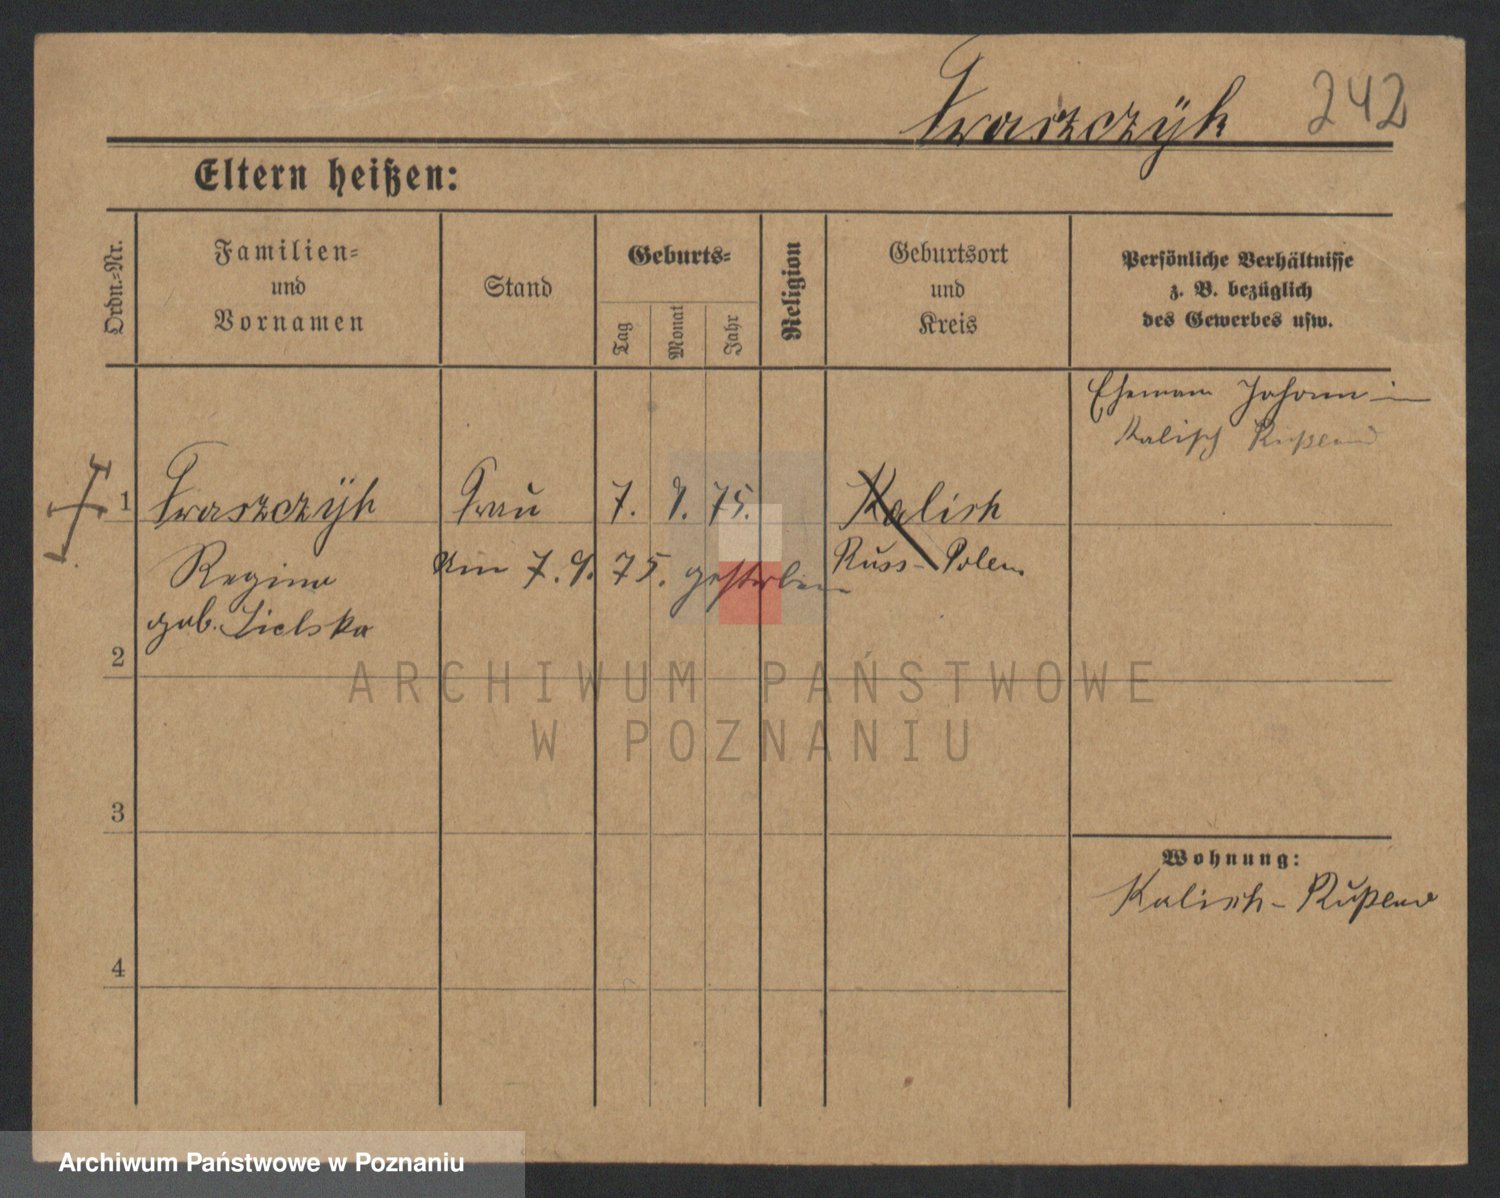 Fraszczÿk 242
Eltern heißen:
Ordn.-Nr.
Familien-
und
Vornamen
Stand
Geburts-
Tag
Monat
Jahr
Religion
Geburtsort
und
Kreis
Persönliche Verhältnisse
z. B. bezüglich
des Gewerbes usw.
Ehemann Johann in
Kalisch Rußland
1 Fraszczÿk Frau 7. 9. 75. Kalisch
Regina Am 7. 9. 75. gestorben Russ-Polen
geb. Zielska
2
ARCHIWUM PAŃSTWOWE
W POZNANIU
3
Wohnung:
Kalisch-Rußland
4
Archiwum Państwowe w Poznaniu